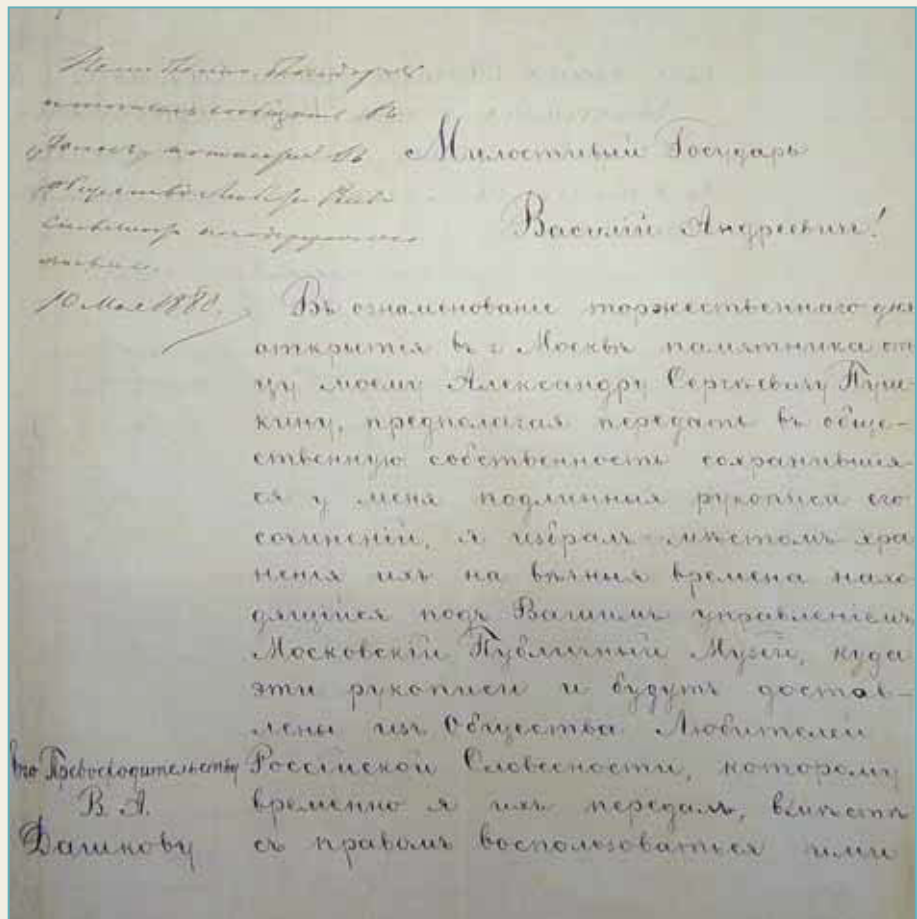 10 Мая 1880.
Милостивый Государь
Василій Андреевичъ!
Въ ознаменованіе торжественнаго дня
открытія въ г. Москвѣ памятника от
цу моему Александру Сергѣевичу Пуш
кину, предполагая передать въ обще-
ственную собственность сохранившія
ся у меня подлинныя рукописи его
сочиненій, я избралъ мѣстомъ хра
ненія ихъ на вѣчныя времена нахо
дящійся подъ Вашимъ управленіемъ
Московскій Публичный Музей, куда
эти рукописи и будутъ достав-
лены изъ Общества Любителей
Россійской Словесности, которому
временно я ихъ передалъ, вмѣстѣ
съ правомъ воспользоваться ими
Его Превосходительству
В. А.
Дашкову